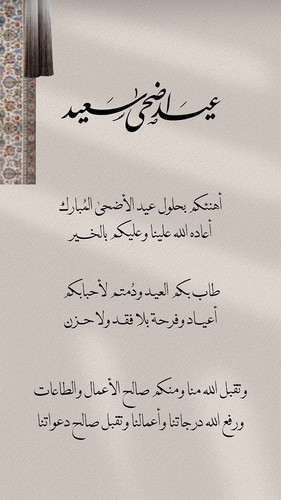 عيد اضحى سعيد
أهنئكم بحلول عيد الأضحى المُبارك
أعاده الله علينا وعليكم بالخير
طاب بكم العيد ودُمتم لأحبابكم
أعياد وفرحة بلا فقد ولا حزن
وتقبل الله منا ومنكم صالح الأعمال والطاعات
ورفع الله درجاتنا وأعمالنا وتقبل صالح دعواتنا